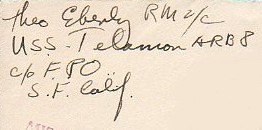 Theo Eberly RM 2/c
U.S.S. Telamon ARB 8
c/o F.P.O.
S.F. Calif.